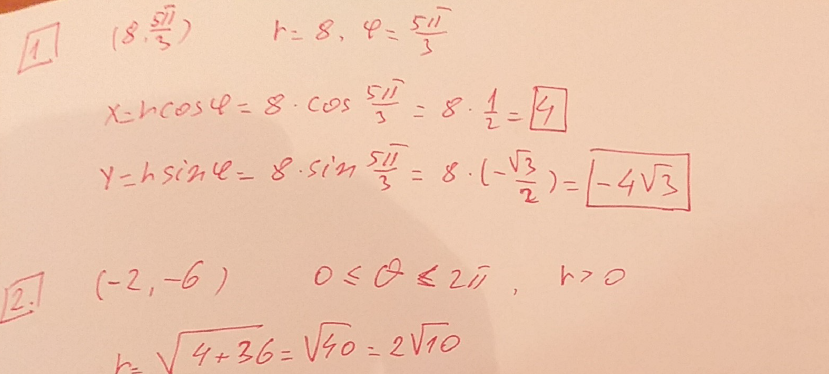 1. (8, 5π/3) r = 8, φ = 5π/3
x = r cos φ = 8 · cos 5π/3 = 8 · 1/2 = 4
y = r sin φ = 8 · sin 5π/3 = 8 · (-√3/2) = -4√3
2. (-2, -6) 0 ≤ θ ≤ 2π, r > 0
r = √4+36 = √40 = 2√10